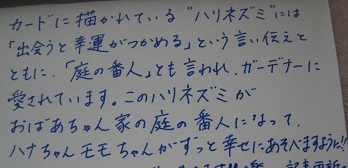 カードに描かれている“ハリネズミ”には
「出会うと幸運がつかめる」という言い伝えと
ともに、「庭の番人」とも言われ、ガーデナーに
愛されています。このハリネズミが
おばあちゃん家の庭の番人になって、
ハナちゃんモモちゃんがずっと幸せにあそべますように!!